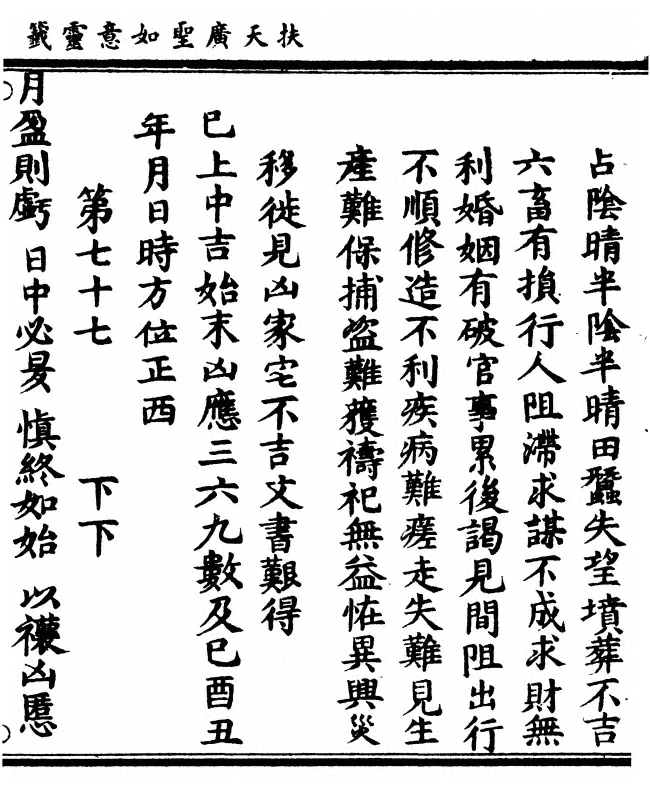 扶天廣聖如意靈籤
占陰晴半陰半晴田蠶失望墳葬不吉
六畜有損行人阻滯求謀不成求財無
利婚姻有破官事累後謁見間阻出行
不順修造不利疾病難瘥走失難見生
產難保捕盗難獲禱祀無益恠異興災
移徙見凶家宅不吉文書艱得
已上中吉始末凶應三六九數及巳酉丑
年月日時方位正西
第七十七 下下
月盈則虧 日中必昃 慎終如始 以禳凶慝